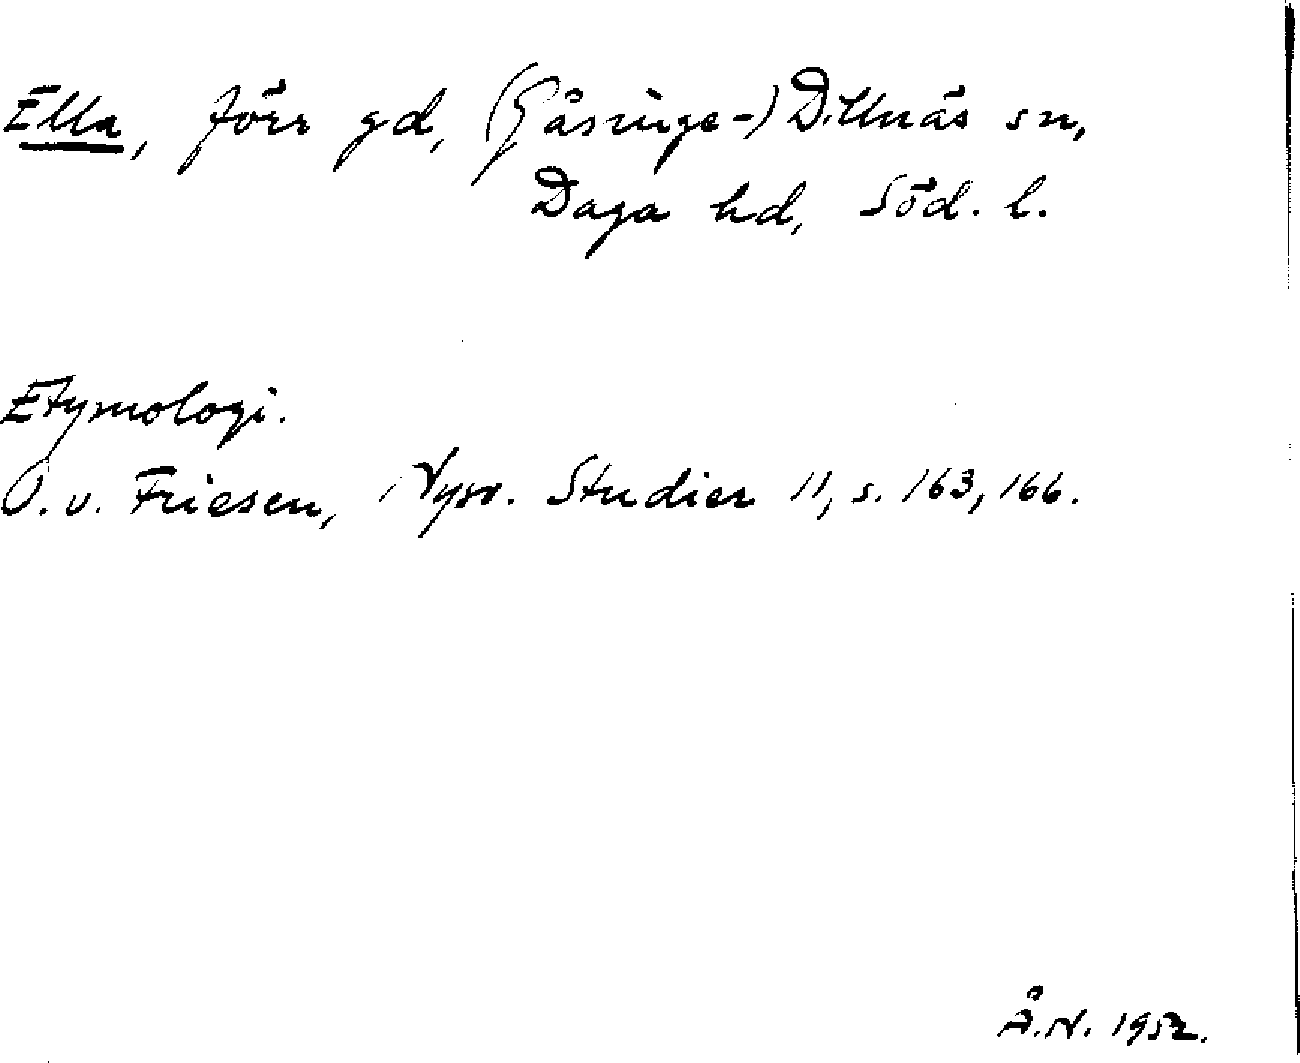 Ella, förr gd, (Gåsinge-) Dillnäs sn,
Daga hd, Söd. l.
Etymologi.
O. v. Friesen, Nysv. Studier 11, s. 163, 166.
Å.N. 1952.